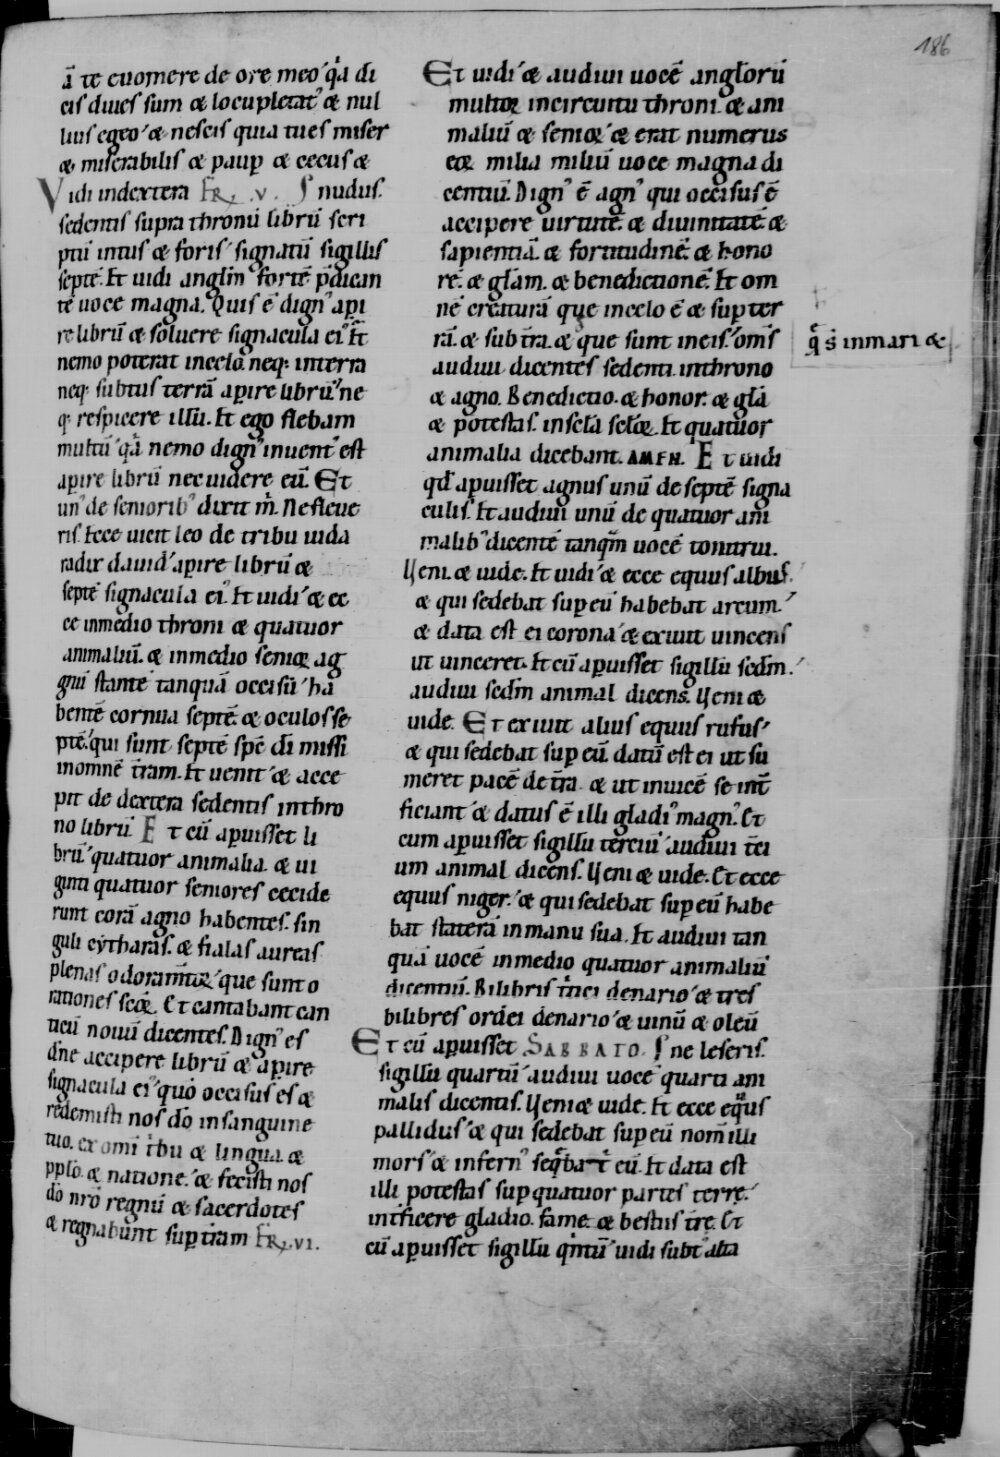 186
ā te euomere de ore meo. q̇a di
cis diues sum & locupletat᷒ & nul
lius egeo. & nescis quia tu es miser
& miserabilis & paup̲ & cecus &
Vidi indextera FR̄. V. ſ nudus.
sedentis supra thronū librū scri
ptū intus & foris. signatū sigillis
septē. Et uidi anglm̄ fortē p̄dican
tē uoce magna. Quis ē dign᷒ ap̲i
re librū & soluere signacula ei᷒. Et
nemo poterat incelo. neq; interra
neq; subtus terrā ap̲ire librū. ne
q; respicere illū. Et ego flebam
multū. q̇a nemo dign᷒ inuent᷒ est
ap̲ire librū nec uidere eū. Et
un᷒ de seniorib᷒ dixit m̄. Ne fleue
ris. Ecce uicit leo de tribu iuda
radix dauid. ap̲ire librū &
septē signacula ei᷒. Et uidi. & ec
ce inmedio throni & quatuor
animaliū. & inmedio senioꝝ ag
gnū stantē tanquā occisū. ha
bentē cornua septē. & oculos se
ptē. qui sunt septē sp̄c dī missi
inomnē t̄ram. Et uenit. & acce
pit de dextera sedentis inthro
no librū. Et cū ap̲uisset li
brū. quatuor animalia. & ui
ginti quatuor seniores cecide
runt corā agno habentes. sin
guli cytharas. & fialas aureas
plenas odoram̄toꝝ. que sunt o
rationes sc̄oꝝ. Et cantabant can
ticū nouū dicentes. Dign᷒ es
dn̄e accipere librū & ap̲ire
signacula ei᷒. quō occisus es &
redemisti nos dō in sanguine
tuo. ex omī t̄bu & lingua. &
pplō. & natione. & fecisti nos
dō nrō regnū & sacerdotes
& regnabunt sup̲ t̄ram FR̄. VI.
Et uidi. & audiui uocē anglorū
multoꝝ incircuitu throni. & ani
maliū & senioꝝ. & erat numerus
eoꝝ milia miliū uoce magna di
centiū. Dign᷒ ē agn᷒ qui occisus ē
accipere uirtutē. & diuinitatē. &
sapientiā. & fortitudinē. & hono
rē. & glām. & benedictionē. Et om
nē creaturā que incelo ē & sup̲ ter
rā. & sub t̄ra. & que sunt ineis. om̄s
q̄ s̄ inmari &
audiui dicentes sedenti. inthrono
& agno. Benedictio. & honor. & glā
& potestas. insclā scloꝝ. Et quatuor
animalia dicebant. AMEN. Et uidi
qđ ap̲uisset agnus unū de septē signa
culis. Et audiui unū de quatuor ani
malib᷒ dicentē tanqm̄ uocē tonitrui.
Ueni. & uide. Et uidi. & ecce equus albus.
& qui sedebat sup̲ eū habebat arcum.
& data est ei corona. & exiuit uincens
ut uinceret. Et cū ap̲uisset sigillū scđm.
audiui scđm animal dicens. Ueni &
uide. Et exiuit alius equus rufus.
& qui sedebat sup̲ eū. datū est ei ut su
meret pacē de t̄ra. & ut inuicē se int̄
ficiant. & datus ē illi gladi᷒ magn᷒. Et
cum ap̲uisset sigillū terciū. audiui t̄ci
um animal dicens. Ueni & uide. Et ecce
equus niger. & qui sedebat sup̲ eū habe
bat staterā inmanu sua. Et audiui tan
quā uocē inmedio quatuor animaliū
dicentiū. Bilibris t̄tici denario. & tres
bilibres ordei denario. & uinū & oleū
Et cū ap̲uisset SABBATO. ſ ne leseris.
sigillū quartū. audiui uocē quarti ani
malis dicentis. Ueni & uide. Et ecce eq̄us
pallidus. & qui sedebat sup̲ eū nom̄ illi
mors. & infern᷒ seq̄bat᷒ eū. Et data est
illi potestas sup̲ quatuor partes terre.
int̄ficere gladio. fame. & bestiis t̄re. Et
cū ap̲uisset sigillū q̇ntū. uidi subt᷒ alta